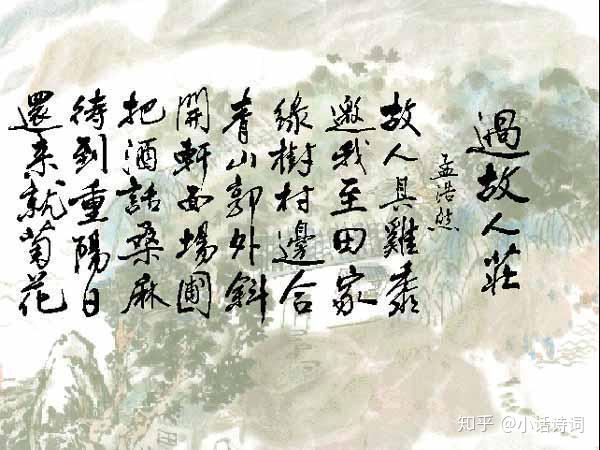 過故人莊
孟浩然
故人具雞黍
邀我至田家
緑樹村邊合
青山郭外斜
開軒面場圃
把酒話桑麻
待到重陽日
還来就菊花
知乎 @小话诗词